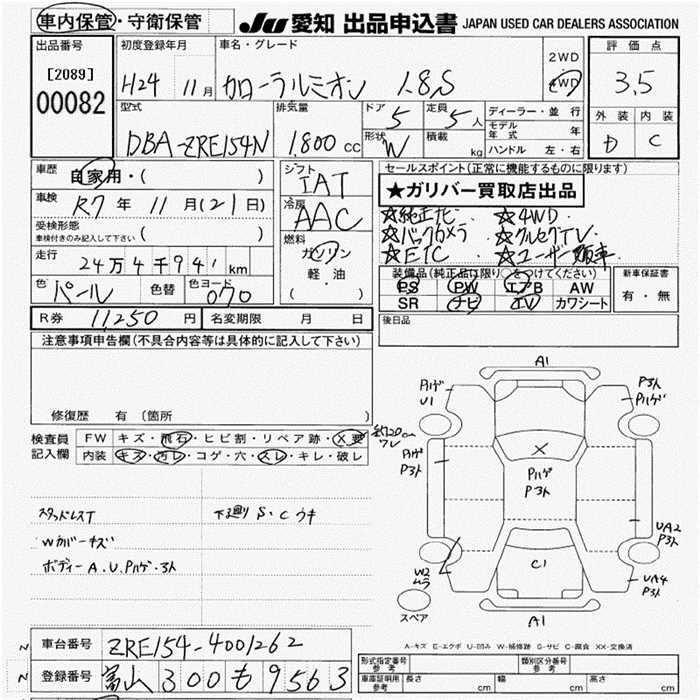 車内保管・守衛保管 JU 愛知 出品申込書 JAPAN USED CAR DEALERS ASSOCIATION
出品番号 [2089] 00082
初度登録年月 H24 11月
車名・グレード カローラルミオン 1.8S
2WD 4WD
評価点 3.5
外装 内装
D C
型式 DBA-ZRE154N
排気量 1.800 CC
ドア 5 定員 5人
形状 W 積載 kg
ディーラー・並行
モデル年式 年
ハンドル 左・右
車歴 自家用・( )
車検 R7年11月(21日)
受検形態 ( )
車検付きのみ記入して下さい
走行 24万4千941km
色 パール 色替 色コード 070
シフト IAT
冷房 AAC
燃料 ガソリン
軽油
( )
セールスポイント(正常に機能するものに限ります)
★ガリバー買取店出品
☆純正ナビ ☆4WD
☆バックカメラ ☆フルセグTV
☆ETC ☆ユーザー買取車
装備品(純正品は限り○をつけてください)
PS PW エアB AW
SR ナビ TV カワシート
新車保証書
有・無
R券 11,250円 名変期限 月 日
後日品
注意事項申告欄(不具合内容等は具体的に記入して下さい)
修復歴 有(箇所 )
検査員記入欄
FW キズ・飛石・ヒビ割・リペア跡・X要
内装 キズ・汚レ・コゲ・穴・スレ・キレ・破レ
スタッドレスT
Wカバーキズ
ボディーA.U.Pハゲ・ヨレ
下廻りS・Cウキ
A1
Pハゲ
U1
Pハゲ
ワレ
Pハゲ
X
Pハゲ
UA2
UA4
W2
ムラ
C1
A1
スペア
A-キズ E-エクボ U-凹み W-補修跡 S-サビ C-腐食 XX-交換済
車台番号 ZRE154-4001262
登録番号 富山300も9563
形式指定番号 参考 類別区分番号 参考
車庫証明用 参考 長さ cm 幅 cm 高さ cm